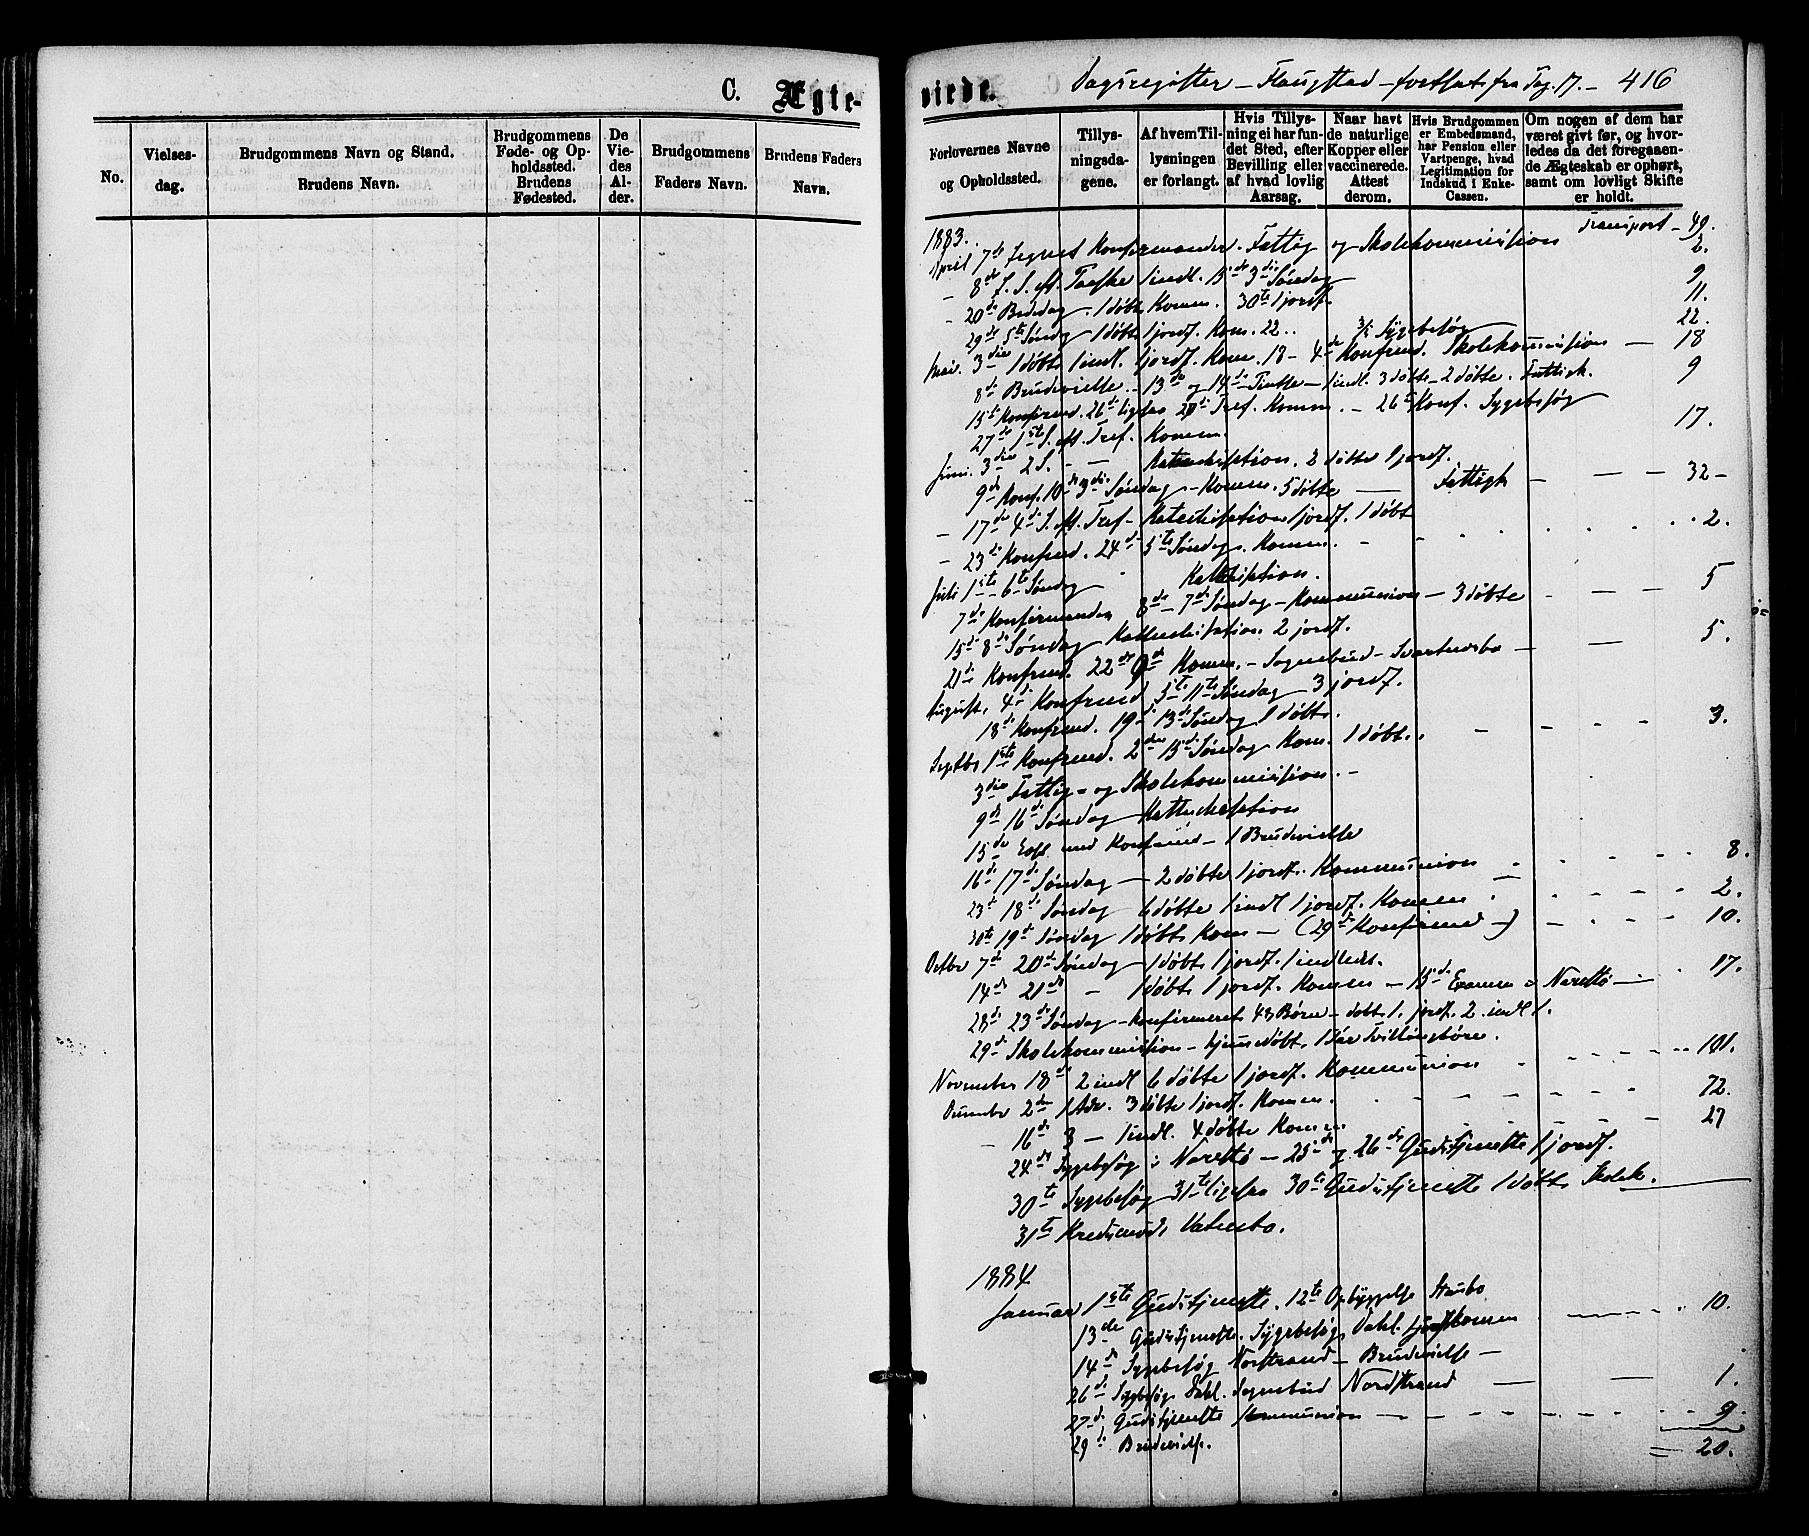 C. Ægte-
No.
Vielses-
dag.
Brudgommens Navn og Stand.
Brudens Navn.
Brudgommens
Føde- og Op-
holdssted.
Brudens
Fødested.
De
Vie-
des
Al-
der.
Brudgommens
Faders Navn.
Brudens Faders
Navn.
viede. Dagsregister - Flaugstad - fortsat fra Pag. 17. - 416
Forlovernes Navne
og Opholdssted.
Tillys-
ningsda-
gene.
Af hvem Til-
lysningen
er forlangt.
Hvis Tillys-
ning ei har fun-
det Sted, efter
Bevilling eller
af hvad lovlig
Aarsag.
Naar havt
de naturlige
Kopper eller
vaccinerede.
Attest
derom.
Hvis Brudgommen
er Embedsmand,
har Pension eller
Vartpenge, hvad
Legitimation for
Indskud i Enke-
Cassen.
Om nogen af dem har
været givt før, og hvor-
ledes da det foregaaen-
de Ægteskab er ophørt,
samt om lovligt Skifte
er holdt.
1883. Transport - 49.
April 7de Konfirmander. Fattig og Skolekommission 2.
- 8de 1. S. eft. Paaske 1 indl. 15de 3die Søndag 9
- 20de Bededag. 1 døbt Komm. 30te 1 jordf. 11.
29de 5te Søndag 1 døbt 1 jordf. Kom. 22.. Sygebesøg 22.
Mai. 3die 1 døbt 1 indl. 1 jordf. Kom. 18 - 4de Konfrmd. Skolekommission - 18
8de Brudevielse - 13de og 14de Pintse - 1 indl. 3 døbte - 2 døbte. Fattigk. 9
15de Konfirmd. 26de 20de Tref. Komm. - 26te Konf. Sygebesøg
27de 1ste S. eft. Tref. Komm. 17.
Juni. 3die 2 S. - - Katechisation. 2 døbte 1 jordf.
9de Konf. 10de 3die Søndag - Komm. 5 døbte - Fattigk - - - 32 -
- 17de 4de S. eft. Tref - Katechisation 1 jordf. 1 døbt
- 23de Konfrmd. 24de 5te Søndag. Komm. - 2.
Juli 1ste 6te Søndag Katechisation.
7de Konfirmander 8de - 7de Søndag - Kommunion - 3 døbte - - 5
15de 8de Søndag Katechisation. 2 jordf.
21de Konfrmd. 22de 9de Komm. - Sognebud - - - 5.
August. 4de Konfrmd 5te 11te Søndag 3 jordf.
18de Konfrmd. 19de 13de Søndag 1 døbt. - - - 3.
Septbr 1ste Konfrmd. 2den 15de Søndag Kom. 1 døbt. - -
3die Fattig- og Skolekommission. -
9de 16de Søndag Katechisation
15de med Konfirmd - 1 Brudevielse
16de 17de Søndag - 2 døbte 1 jordf. Kommunion - 8.
23de 18de Søndag 6 døbte 1 indl 1 jordf. Komm - 2.
30te 19de Søndag 1 døbt Kom - (29de Konfirmd -) - 10.
Octbr 7de 20de Søndag - 1 døbt 1 jordf. 1 indledt.
14de 21de - 1 døbt 1 jordf. Komm - 15de Examen i Narestø - 17.
28de 23de Søndag - Konfirmeret 43 Børn - døbt 1. jordf. 2. indl 1.
29de Skolekommission - hjemmedøbt 1 Par Tvillingbørn.
November 18de 2 indl 6 døbte 1 jordf. Kommunion - 101.
December 2den 1 Adv. 3 døbte 1 jordf. Komm. - 72.
- 16de 3 - 1 indl. 4 døbte Komm - 27
24de Sygebesøg i Narestø - 25de og 26de Gudstjeneste 1 jordf.
30te Sygebesøg 31te 30te Gudstjeneste 1 døbt. Skolek.
31te
1884
Januar 1ste Gudstjeneste. 12te Opbyggelse Staubo
13de Gudstjeneste. Sygebesøg Dahl. - 10.
14de Sygebesøg Norstrand - Brudevielse -
26de Sygebesøg Dahl. Sognebud Nordstrand - - 1.
27de Gudstjeneste Kommunion - 9.
29de Brudevielse. = 20.